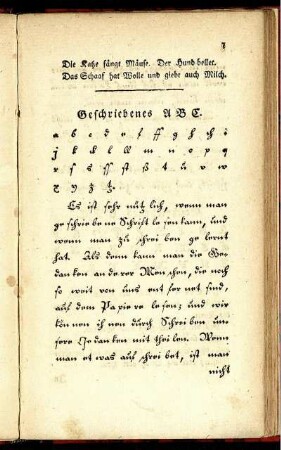 Die Katze fängt Mäuse. Der Hund bellet.
Das Schaaf hat Wolle und giebt auch Milch.
Geschriebenes ABC.
a b c d e f ff g h ch i
j k ck l ll m n o p q
r s ſ ſſ ſt ß t u v w
x y z tz.
Es ist sehr nütz lich, wenn man
ge schrie be ne Schrift le sen kann, und
wenn man zu schrei ben ge lernt
hat. Als denn kann man die Ge-
dan ken an de rer Men schen, die noch
so weit von uns ent fer net sind,
auf dem Pa pie re le sen; und wir
kön nen ih nen durch Schrei ben un-
sere Ge dan ken mit thei len. Wenn
man et was auf schrei bet, ist man
nicht